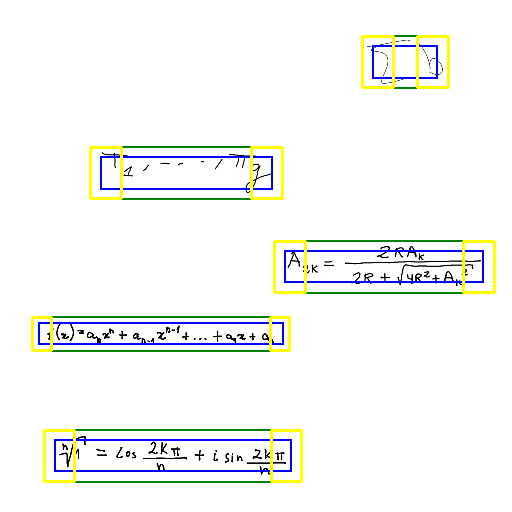 π_1, ..., π_g
A_{2K} = \frac{2RA_K}{2R + \sqrt{4R^2 + A_K^2}}
f(x) = a_n x^n + a_{n-1} x^{n-1} + ... + a_1 x + a_0
\sqrt[n]{1} = cos \frac{2kπ}{n} + i sin \frac{2kπ}{n}